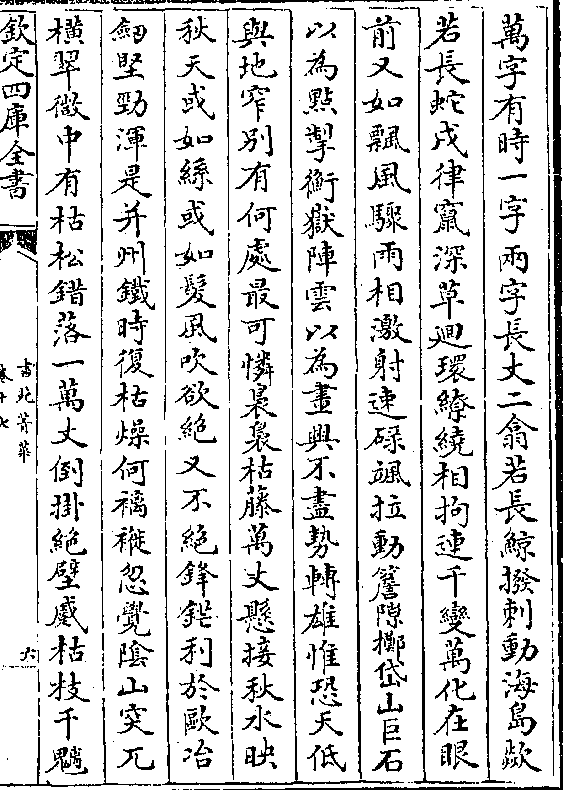 萬字有時一字兩字長丈二翕若長鯨撥剌動海島歘
若長蛇戍律竄深草廻環繚繞相拘連千變萬化在眼
前又如飄風驟雨相激射速碌颯拉動簷隙擲岱山巨石
以為㸃掣衡嶽陣雲以為畫興不盡勢轉雄惟恐天低
與地窄别有何處最可憐裊裊枯藤萬丈懸接秋水映
秋天或如絲或如髮風吹欲絶又不絶鋒鋩利於歐冶
劒堅勁渾是并州鐵時復枯燥何褵褷忽覺陰山突兀
横翠微中有枯松錯落一萬丈倒掛絶壁蹙枯枝千魑
欽定四庫全書
書苑菁華
卷十七
六